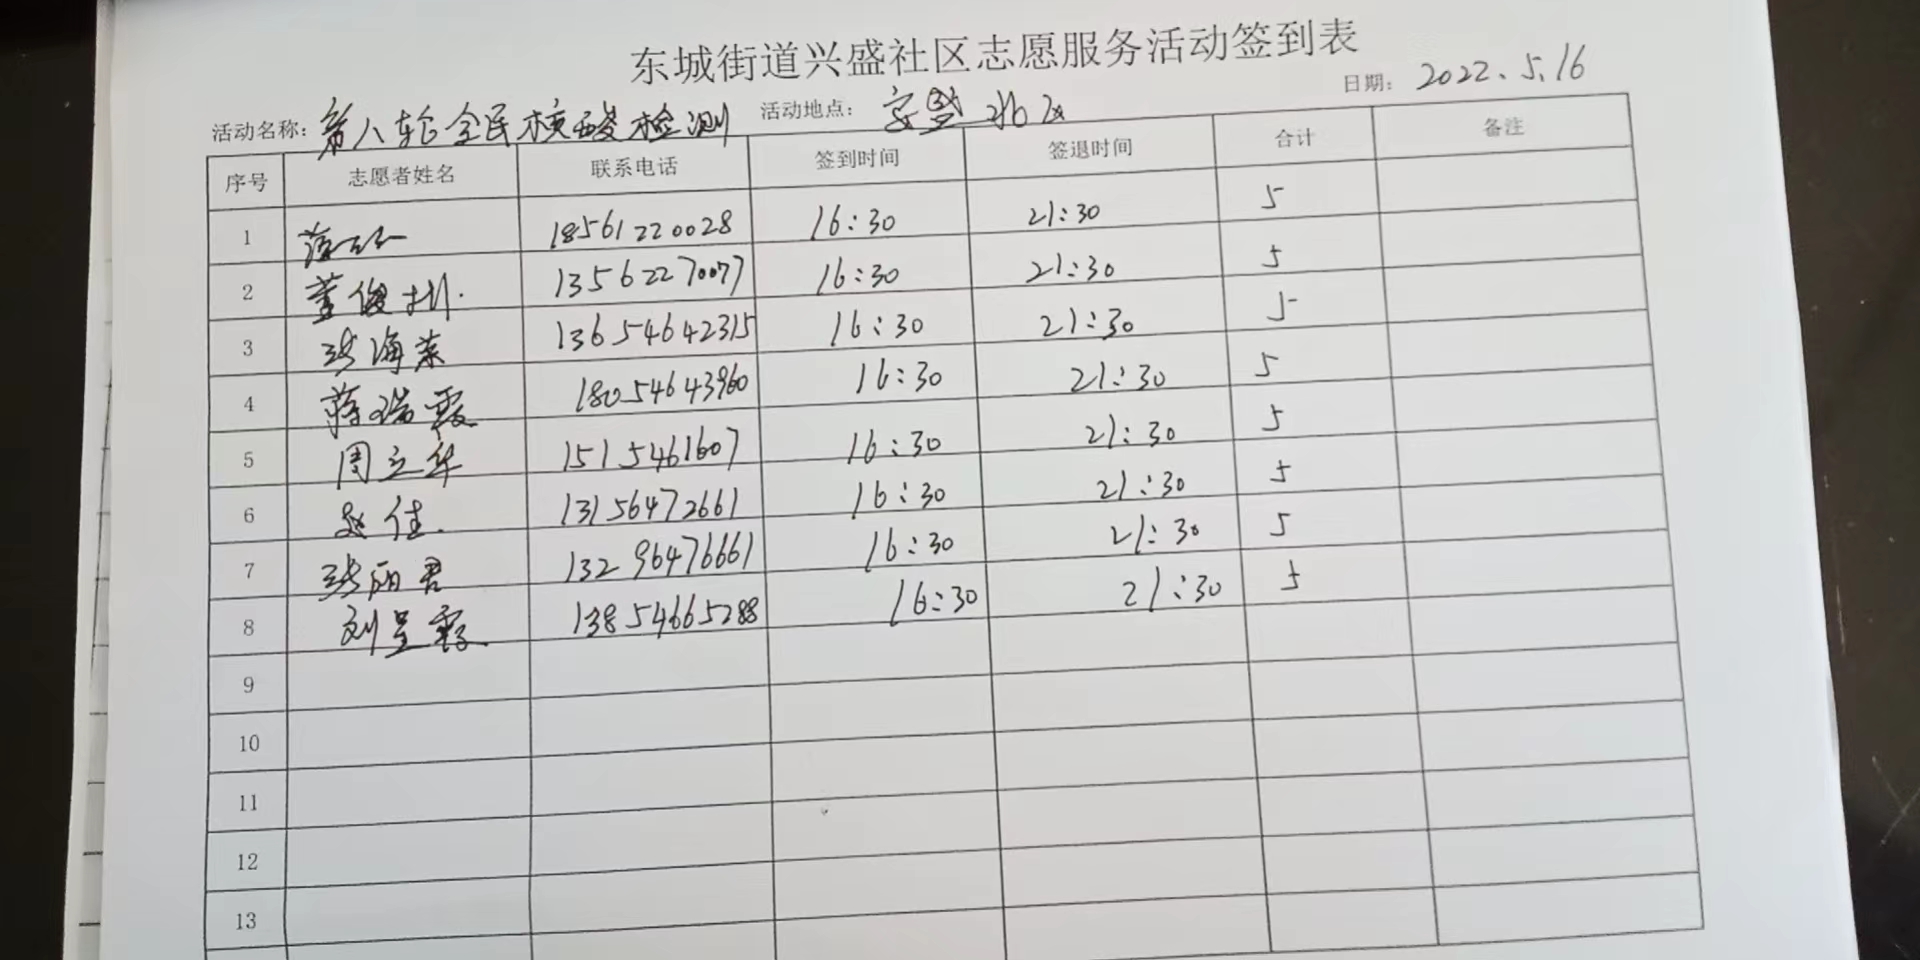 东城街道兴盛社区志愿服务活动签到表
日期: 2022.5.16
活动名称: 第八轮全民核酸检测 活动地点: 安盛北区
序号 志愿者姓名 联系电话 签到时间 签退时间 合计 备注
1 18561220028 16:30 21:30 5
2 董俊 13562270077 16:30 21:30 5
3 张海棠 13654642315 16:30 21:30 5
4 蒋瑞霞 18054643960 16:30 21:30 5
5 周立华 15154611607 16:30 21:30 5
6 赵佳. 13156472661 16:30 21:30 5
7 张丽君 13296476661 16:30 21:30 5
8 刘呈霞. 13854665288 16:30 21:30 5
9
10
11
12
13